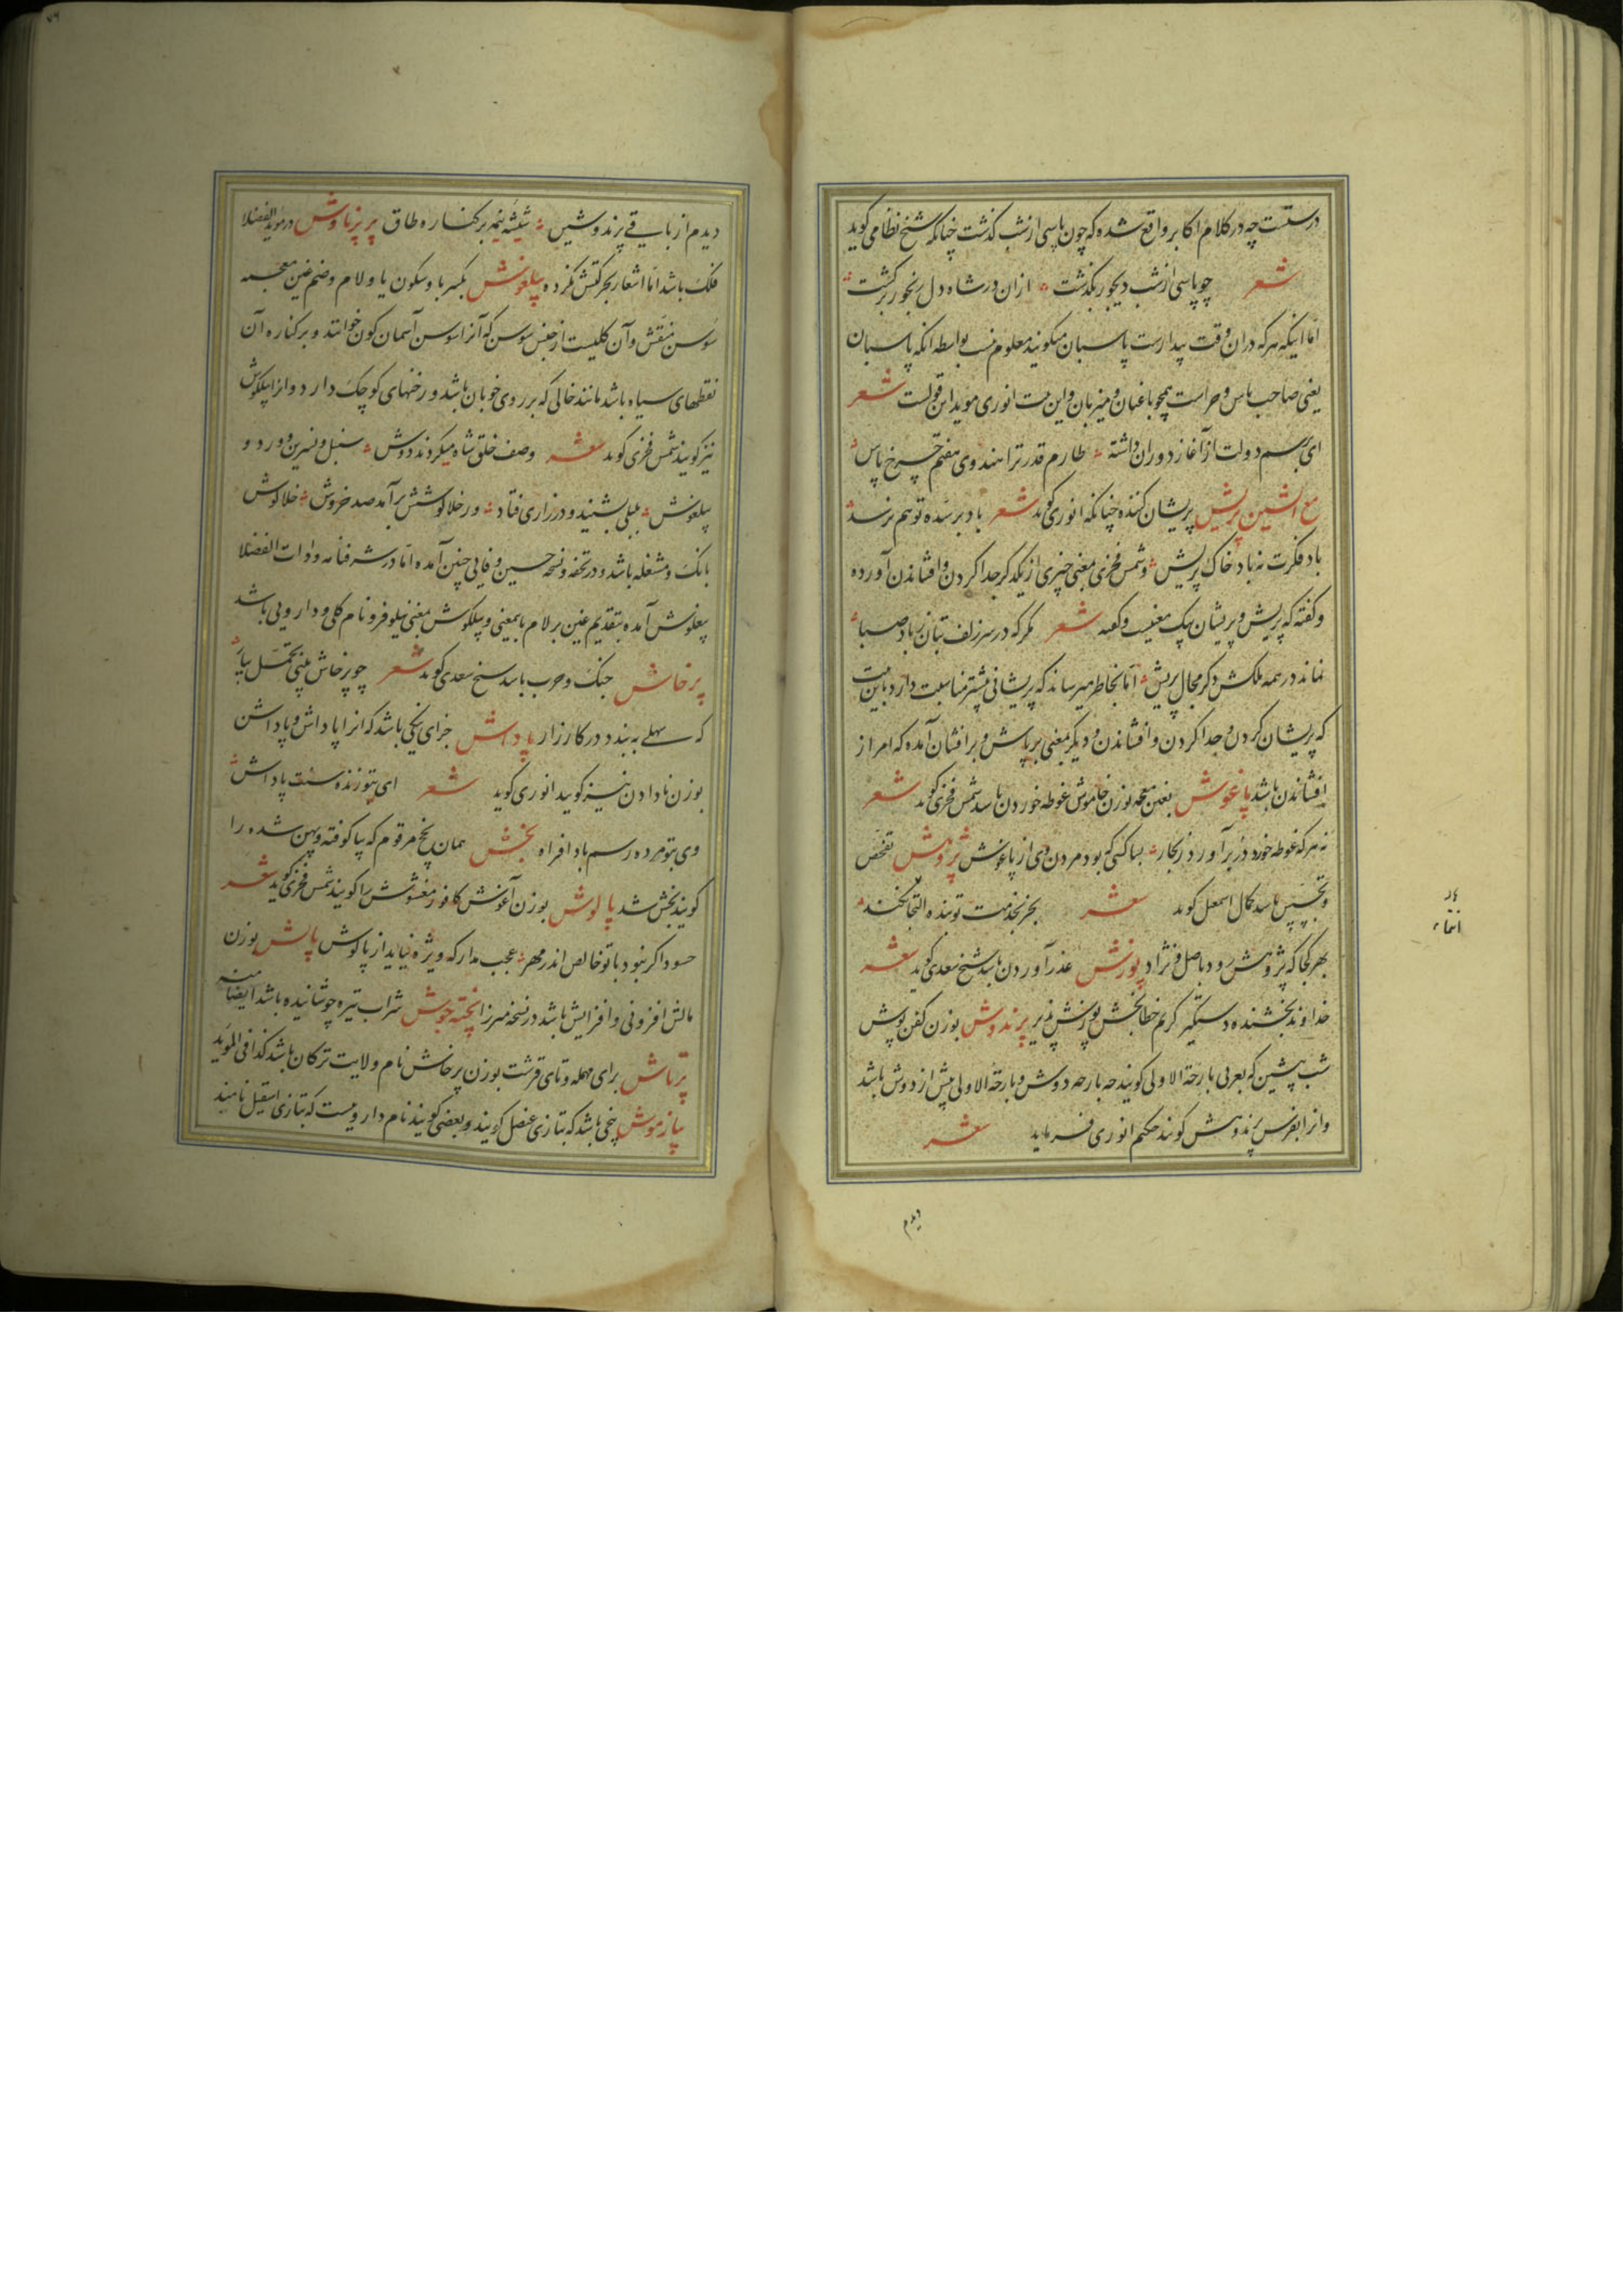 درستست چه در کلام اکابر واقع شده که چون پاسی از شب گذشت چنانکه شیخ نظامی گوید
شعر چو پاسی از شب دیجور بگذشت ازان در شاه دل رنجور برگشت
اما اینکه هر که دران وقت بیدارست پاسبان میگویند معلوم نیست بواسطه آنکه پاسبان
یعنی صاحب پاس و حراست همچو باغبان و میزبان و این بیت انوری موید این قولست شعر
ای برسم دولت از آغاز دوران داشته طارم قدر ترا هندوی هفتم چرخ پاس
مع الشین پریش پریشان کننده چنانکه انوری گوید شعر باد بر سده تو هم نرسد
باد فکرت نه باد خاک پریش و شمس فخری بمعنی چیزی از یکدگر جدا کردن و افشاندن آورده
و گفته که پریش و پریشان بیک معنیست و گفته شعر مگر که در سر زلف بتان ز باد صبا
نماند در همه ملکش دگر مجال پریش اما بخاطر میرساند که پریشانی بیشتر مناسبت دارد باین بیت
که پریشان کردن و جدا کردن و افشاندن و دیگر بمعنی برپاش و برافشان آمده که امر از
افشاندن باشد پاغوش بغین معجمه بوزن خاموش غوطه خوردن باشد شمس فخری گوید شعر
نه هر که غوطه خورد در برآورد ز بحار بسا کسی که بود مردن وی از پاغوش پژوهش تفحص
و تجسس باشد کمال اسمعیل گوید شعر بجز بخدمت تو بنده التجا نکند
بهر کجا که پژوهش رود باصل و نژاد پوزش عذر آوردن باشد شیخ سعدی گوید شعر
خداوند بخشنده دستگیر کریم خطابخش پوزش پذیر پرندوش بوزن کفن پوش
شب پیشین که بعربی بارحة الاولی گویند چه بارحه دوش و بارحة الاولی پیش از دوش باشد
و انرا بفرس پرندوش گویند حکیم انوری فرماید شعر
دیدم
دیدم از باقی پرندوشین شیشه نیمه بر کناره طاق پریزناوش در موید الفضلا
فلک باشد اما اشعار بحرکتش نکرده پیلغوش بکسر با و سکون یا و لام و ضم غین معجمه
سوسن منقش و آن گلیست از جنس سوسن که آنرا سوسن آسمان گون خوانند و بر کناره آن
نقطهای سیاه باشد مانند خالی که بر روی خوبان باشد و رخنهای کوچک دارد و انرا پیلگوش
نیز گویند شمس فخری گوید شعر وصف خلق شاه میکردند دوش سنبل و نسرین و ورد و
پیلغوش بلبلی بشنید و در زاری فتاد ور خلالوشش برآمد صد خروش خلالوش
بانگ و مشغله باشد و در تحفه و نسخه حسین وفایی چنین آمده اما در شرفنامه و ادات الفضلا
پیغلوش آمده بتقدیم غین بر لام باینمعنی و پیلگوش بمعنی نیلوفر و نام گلی و دارویی باشد
پرخاش جنگ و حرب باشد شیخ سعدی گوید شعر چو پرخاش بینی تحمل بیار
که سهلی ببندد در کارزار پاداش جزای نیکی باشد که انرا پاداش و پاداشن
بوزن نادادن نیز گویند انوری گوید شعر ای بتو زنده سنت پاداش
وی بتو مرده رسم بادافراه پخش همان پخچ مرقوم که پا کوفته و پهن شده را
گویند پخش شد پالوش بوزن آغوش کافور مغشوش را گویند شمس فخری گوید شعر
حسود اگر نبود با تو خالص اندر مهر عجب مدار که ویژه نیاید از پالوش پالش بوزن
مالش افزونی و افزایش باشد در نسخه میرزا پخته جوش شراب تیره جوشانیده باشد ایضا منه
پرتاش برای مهمله و تای قرشت بوزن پرخاش نام ولایت ترکان باشد کذا فی المؤید
پیازموش بیخی باشد که بتازی عنصل گویند و بعضی گویند نام دارویست که بتازی اسقیل نامند